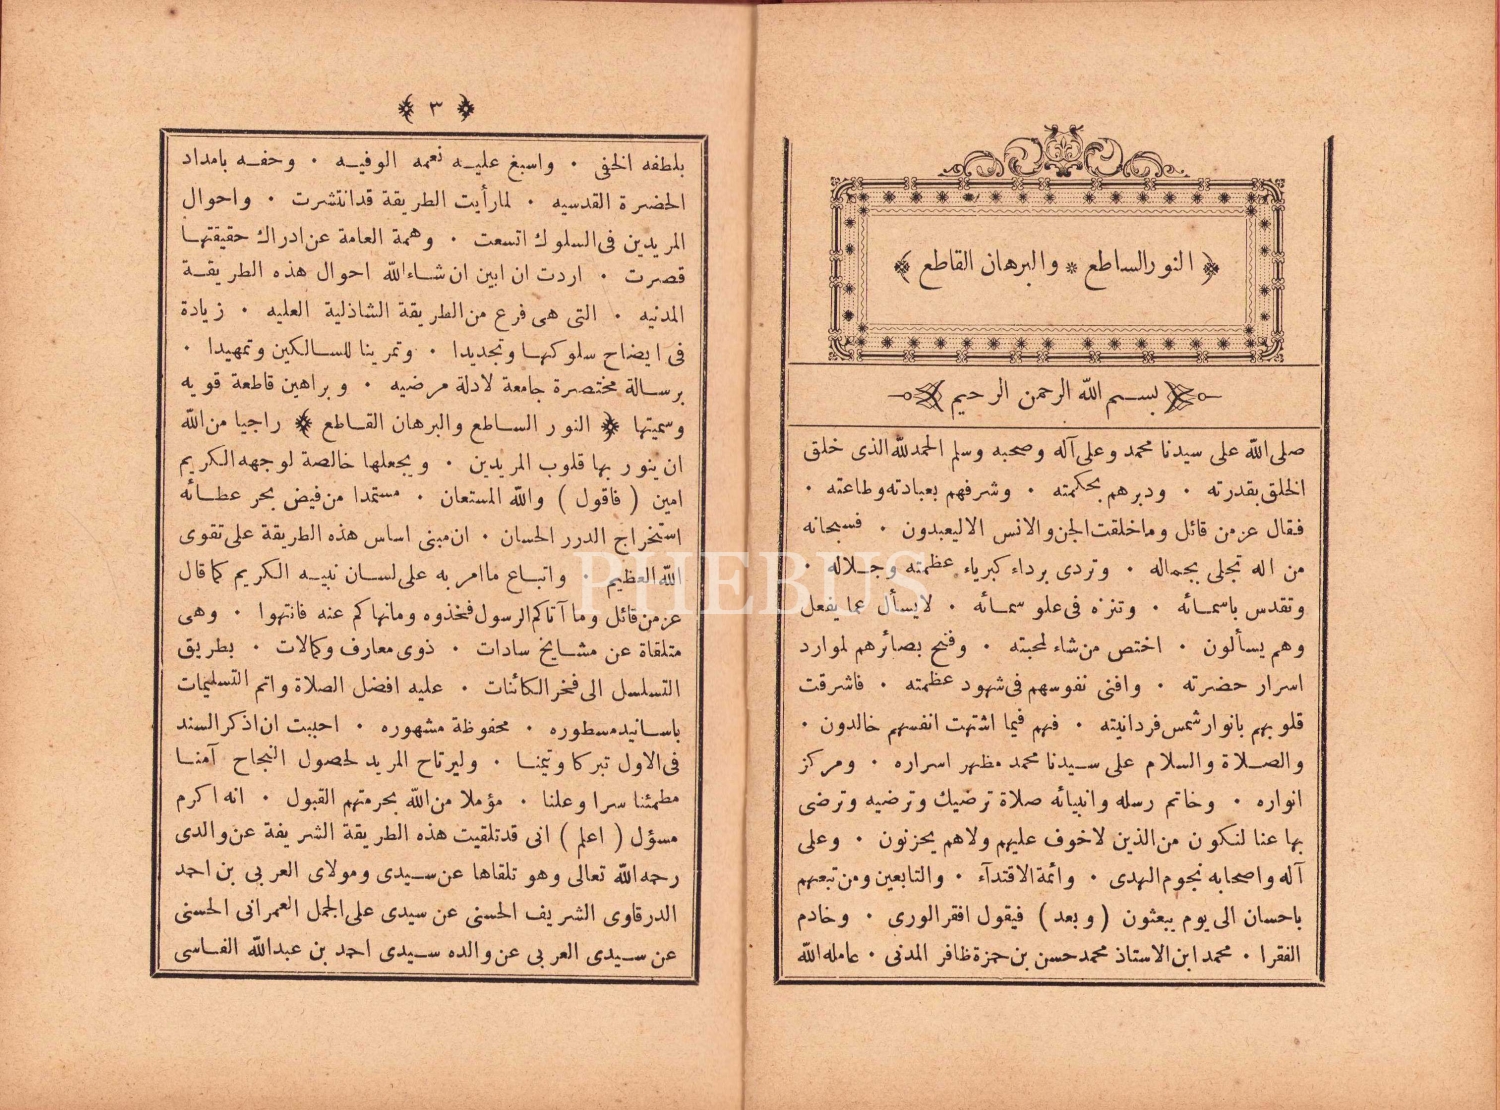 ﴿ النور الساطع * والبرهان القاطع ﴾
بسم الله الرحمن الرحيم
صلى الله على سيدنا محمد وعلى آله وصحبه وسلم الحمدلله الذى خلق
الخلق بقدرته ٠ ودبرهم بحكمته ٠ وشرفهم بعبادته وطاعته ٠
فقال عزمن قائل وماخلقت الجن والانس الاليعبدون ٠ فسبحانه
من اله تجلى بجماله ٠ وتردى برداء كبرياء عظمته وجلاله ٠
وتقدس باسمائه ٠ وتنزه فى علو سمائه ٠ لايسأل عما يفعل
وهم يسألون ٠ اختص من شاء لمحبته ٠ وفتح بصائرهم لموارد
اسرار حضرته ٠ وافنى نفوسهم فى شهود عظمته ٠ فاشرقت
قلوبهم بانوار شمس فردانيته ٠ فهم فيما اشتهت انفسهم خالدون ٠
والصلاة والسلام على سيدنا محمد مظهر اسراره ٠ ومركز
انواره ٠ وخاتم رسله وانبيائه صلاة ترضيك وترضيه وترضى
بها عنا لنكون من الذين لاخوف عليهم ولاهم يحزنون ٠ وعلى
آله واصحابه نجوم الهدى ٠ وائمة الاقتدآء ٠ والتابعين ومن تبعهم
باحسان الى يوم يبعثون ( وبعد ) فيقول افقر الورى ٠ وخادم
الفقرا ٠ محمد ابن الاستاذ محمد حسن بن حمزة ظافر المدنى ٠ عامله الله
﴿ ٣ ﴾
بلطفه الخفى ٠ واسبغ عليه نعمه الوفيه ٠ وحفه بامداد
الحضرة القدسيه ٠ لمارأيت الطريقة قدانتشرت ٠ واحوال
المريدين فى السلوك اتسعت ٠ وهمة العامة عن ادراك حقيقتها
قصرت ٠ اردت ان ابين ان شاءالله احوال هذه الطريقة
المدنيه ٠ التى هى فرع من الطريقة الشاذلية العليه ٠ زيادة
فى ايضاح سلوكها وتجديدا ٠ وتمرينا للسالكين وتمهيدا ٠
برسالة مختصرة جامعة لادلة مرضيه ٠ وبراهين قاطعة قويه
وسميتها ﴿ النور الساطع والبرهان القاطع ﴾ راجيا من الله
ان ينور بها قلوب المريدين ٠ ويجعلها خالصة لوجهه الكريم
امين ( فاقول ) والله المستعان ٠ مستمدا من فيض بحر عطائه
استخراج الدرر الحسان ٠ ان مبنى اساس هذه الطريقة على تقوى
الله العظيم ٠ واتباع ماامر به على لسان نبيه الكريم كما قال
عزمن قائل وما آتاكم الرسول فخذوه ومانهاكم عنه فانتهوا ٠ وهى
متلقاة عن مشايخ سادات ٠ ذوى معارف وكمالات ٠ بطريق
التسلسل الى فخر الكائنات ٠ عليه افضل الصلاة واتم التسليمات
باسانيد مسطوره ٠ محفوظة مشهوره ٠ احببت ان اذكر السند
فى الاول تبركا وتيمنا ٠ وليرتاح المريد لحصول النجاح آمنا
مطمئنا سرا وعلنا ٠ مؤملا من الله بحرمتهم القبول ٠ انه اكرم
مسؤل ( اعلم ) انى قدتلقيت هذه الطريقة الشريفة عن والدى
رحمه الله تعالى وهو تلقاها عن سيدى ومولاى العربى بن احمد
الدرقاوى الشريف الحسنى عن سيدى على الجمل العمرانى الحسنى
عن سيدى العربى عن والده سيدى احمد بن عبدالله الفاسى
PHEBUS